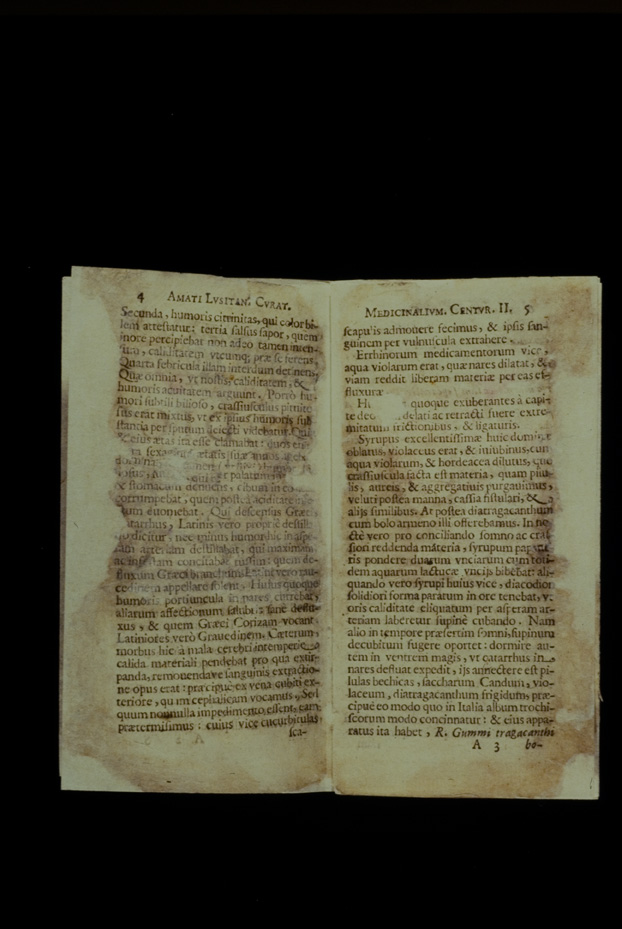 4 AMATI LVSITAN. CVRAT.
Secunda, humoris citrinitas, qui color bi-
lem attestatur: tertia salsus sapor, quem
inore percipiebat non adeo tamen inten-
caliditatem vtcumq; præ se ferens,
Quarta febricula illam interdum detinens,
Quæ omnia, vt nostis, caliditatem, &
humoris acuitatem arguunt. Porrò hu-
mori subtili bilioso, crassiusculus pituito
sus erat mixtus, vt ex ipsius humoris sub
stantia per sputum deiecti videbatur. Qui
ætas ita esse clamabat:
palatum
& stomacum demitens, cibum in eo
corrumpebat, quem postea
euomebat. Qui descensus Græc.
Latinis vero propriè destil
dicitur, nec minus humor hic in aspe-
ram arteriam destillabat, qui maximam
ac infestam concitabat tussim: quem de-
fluxum Græci
appellare solent. Huius quoque
humoris portiuncula in nares currebat,
aliarum affectionum
xus, & quem Græci Corizam vocant,
Latiniores verò Grauedinem. Cæterum,
morbus hic à mala cerebri intemperie
calida materiali pendebat pro qua extir-
panda, remouendave sanguinis extractio-
ne opus erat: præcipuè ex vena cubiti ex-
teriore, quam cephalicam vocamus, Sed
quum nonnulla impedimento essent, eam
prætermisimus: cuius vice cucurbitulas,
sca-
MEDICINALIVM. CENTVR. II. 5
scapulis admouere fecimus, & ipsis san-
guinem per vulnuscula extrahere.
Errhinorum medicamentorum vice,
aqua violarum erat, quæ nares dilatat, &
viam reddit liberam materiæ per eas ef-
fluxuræ
quoque exuberantes à capi-
te delati ac retracti fuere extre-
mitatum frictionibus, & ligaturis.
Syrupus excellentissimæ huic dominæ
oblatus, violaceus erat, & iuiubinus, cum
aqua violarum, & hordeacea dilutus, quo
crassiuscula facta est materia, quam pilu-
lis, aureis, & aggregatiuis purgauimus,
veluti postea manna, cassia fistulari, &
alijs similibus. At postea diatragacanthum
cum bolo armeno illi offerebamus. In no-
cte vero pro conciliando somno ac cras
sion reddenda materia, syrupum papaue-
ris pondere duarum vnciarum cum toti-
dem aquarum lactucæ vncijs bibebat: ali-
quando vero syrupi huius vice, diacodion
solidiori forma paratum in ore tenebat, vt
oris caliditate eliquatum per asperam ar-
teriam laberetur supinè cubando. Nam
alio in tempore præsertim somni, supinum
decubitum fugere oportet: dormire au-
tem in ventrem magis, vt catarrhus in
nares defluat expedit, ijs annectere est pi-
lulas bechicas, saccharum Candum, vio-
laceum, diatragacanthum frigidum, præ-
cipuè eo modo quo in Italia album trochi-
scorum modo concinnatur: & eius appa-
ratus ita habet, R. Gummi tragacanthi
A 3 bo-